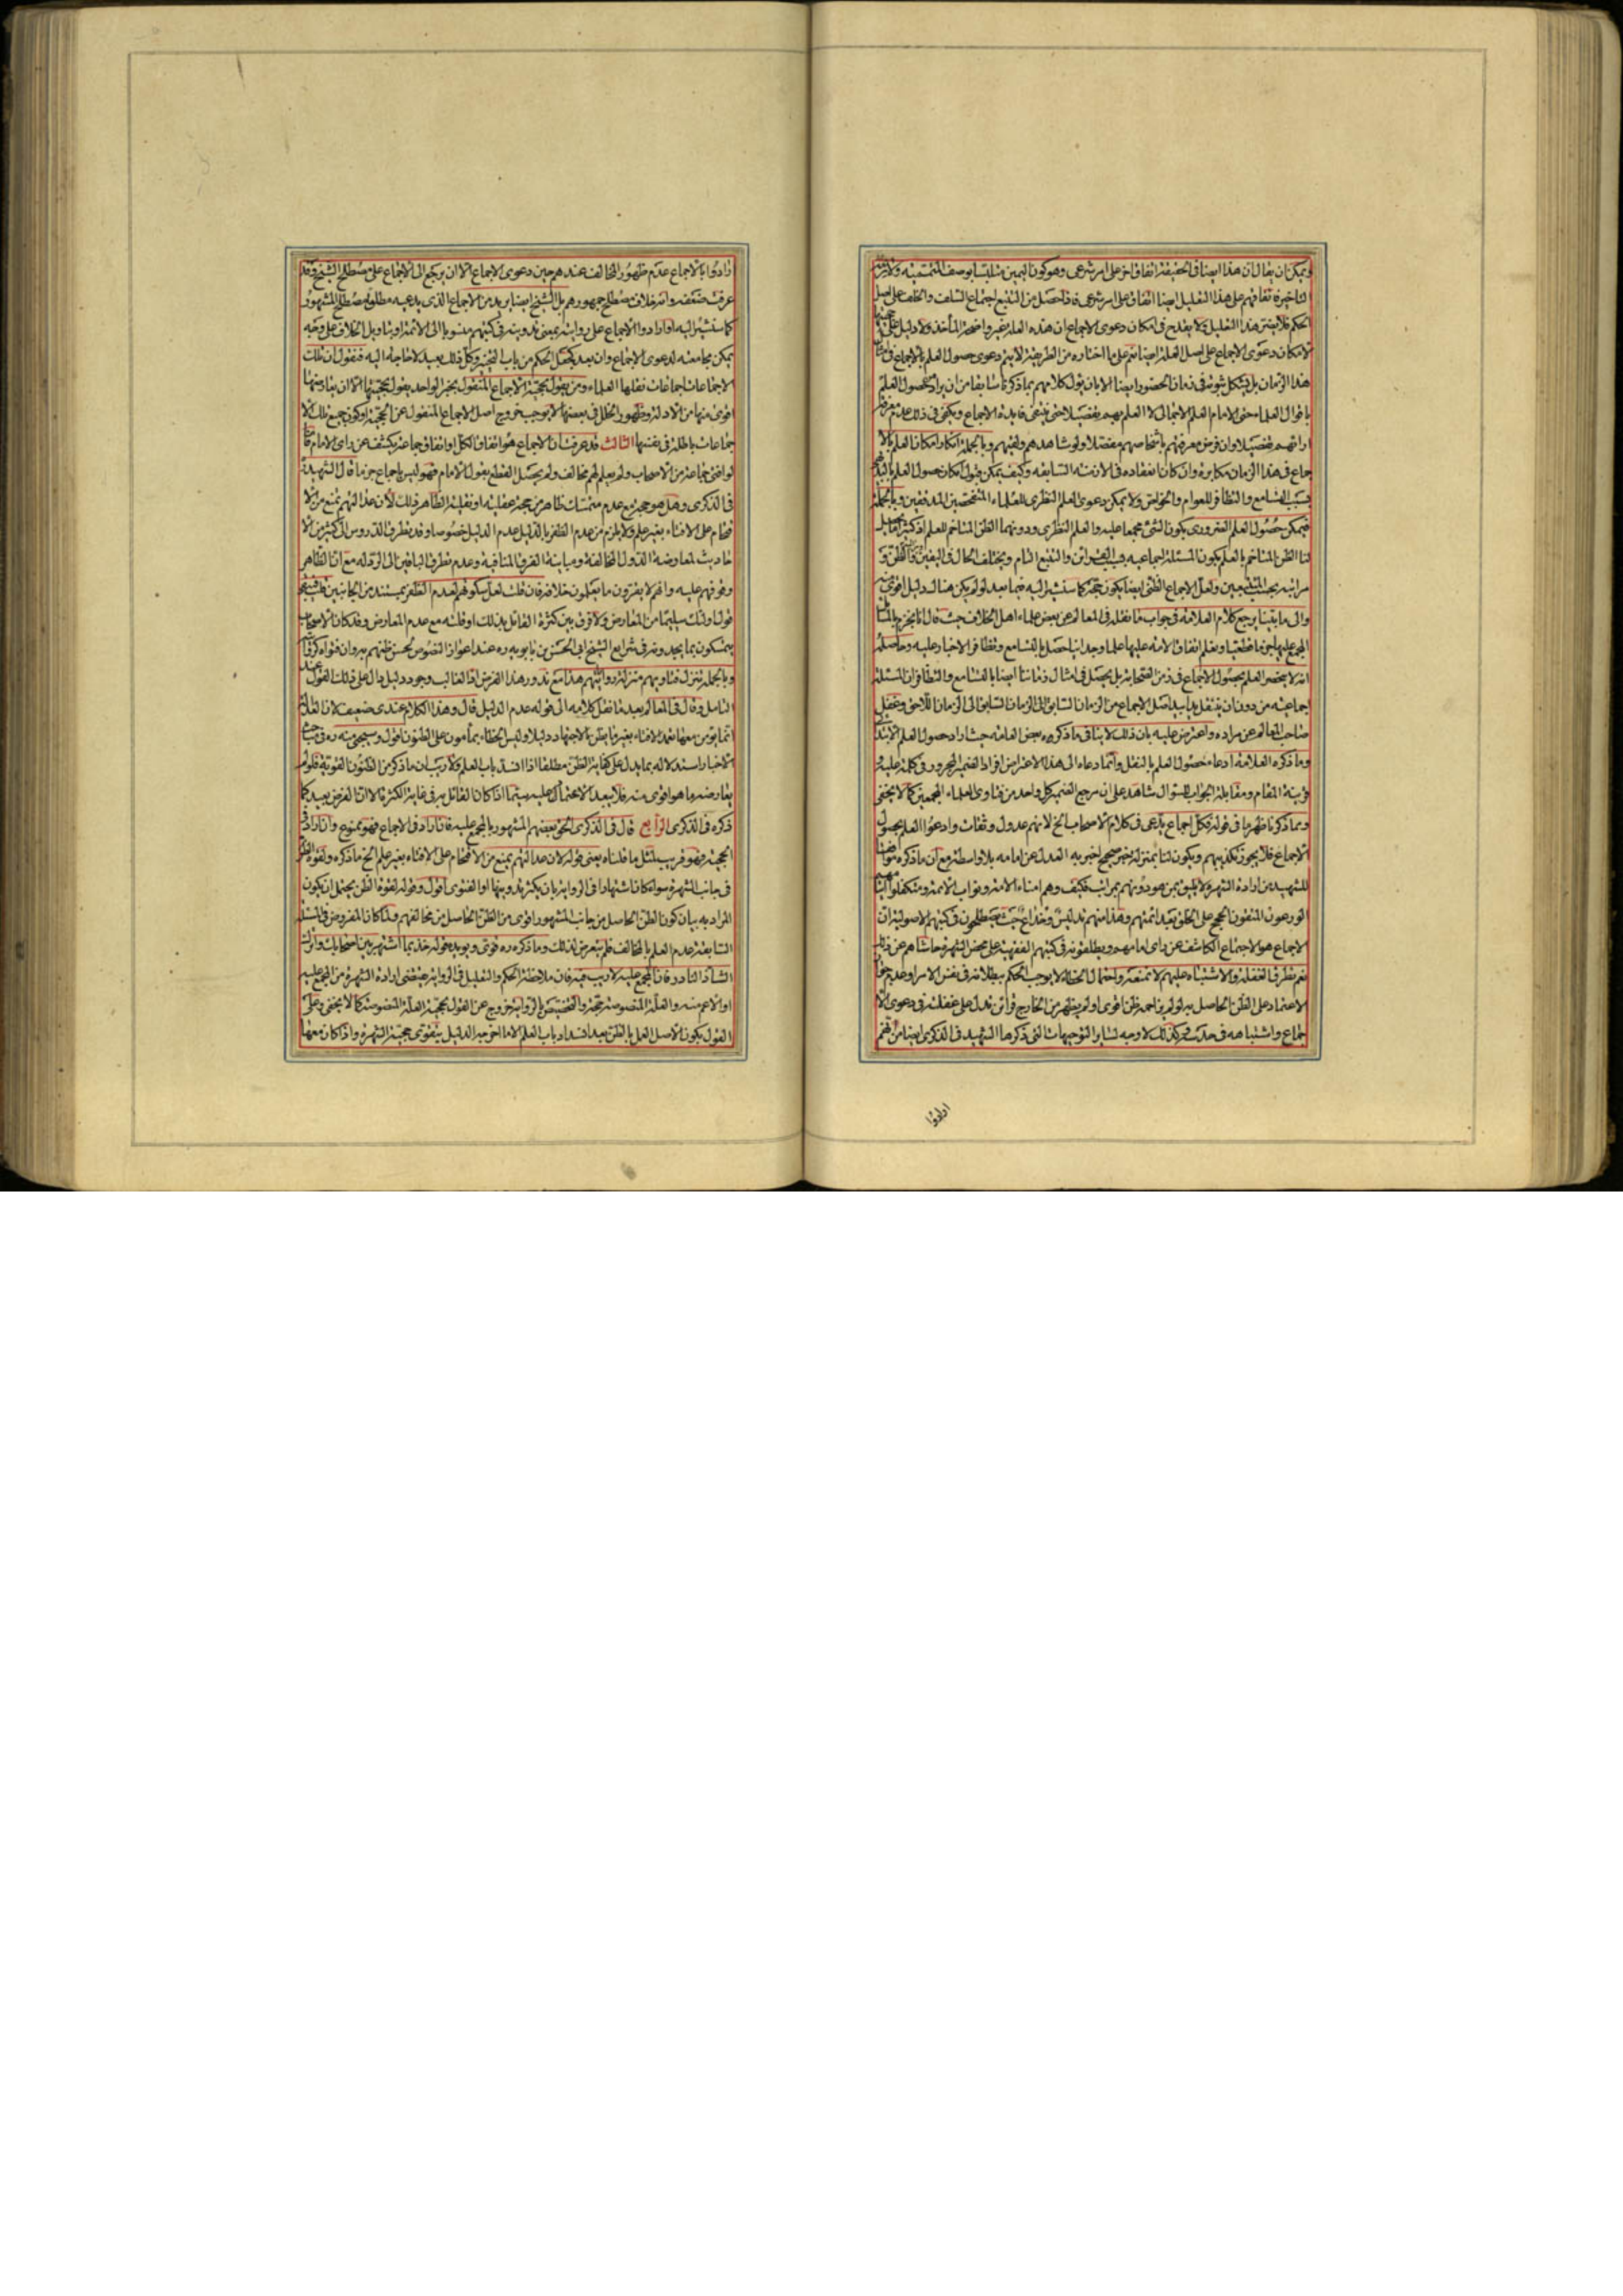 ويمكن ان يقال ان هذا ايضا في الحقيقة اتفاق اخر على امر شرعى وهو كون اليمين متلبسا بوصف التتميته
لتاخيره اتفاقهم على هذا التعليل ايضا اتفاق على امر شرعى فاذا حصل من التتبع اجتماع السلف والخلف على اصل
الحكم فلا يضر هذا التعليل ولا يقدح فى امكان دعوى الاجماع ان هذه العلة غير واضحة المأخذ ولا دليل على
الامكان دعوى الاجماع على اصل العلة ايضا ثم على ما اختاره من الطريقة لا يتم دعوى حصول العلم بالاجماع فى
هذا الزمان بل يشكل ثبوته فى زمان الحضور ايضا الا بان يؤل كلامهم بما ذكرنا سابقا من ان يراد حصول العلم
باقوال العلماء حتى الامام العلم الاجمالى لا العلم بهم تفصيلا حتى ينتفى فايدة الاجماع ويكفى فى ذلك عدم معرفة
ارائهم تفصيلا وان فرض معرفتهم باشخاصهم مفصلا ولو شاهدهم ولقيهم وبالجملة انكار امكان العلم بالا
جماع فى هذا الزمان مكابرة وان كان انعقاده فى الازمنة السابقه وكيف يمكن قبول امكان حصول العلم بالبديهى
بسبب التسامع والتظافر للعوام والخواص ولا يمكن دعوى العلم النظرى للعلماء المتفحصين المدققين وبالجملة
فيمكن حصول العلم الضرورى بكون الشئ مجمعا عليه والعلم النظرى ودونهما الظن المتاخم للعلم اذ كثيرا ما يحصل
لنا الظن المتاخم بالعلم بكون المسئلة اجماعيه بسبب القراين والتتبع التام ويختلف الحال فى اليقين والظن و
مراتبه بحسب المتتبعين ولعل الاجماع الظنى ايضا يكون حجة كما سنشير اليه فيما بعد لو لم يكن هناك دليل اقوى منه
والى ما بينا يرجع كلام العلامة فى جواب ما نقله فى المعالم عن بعض علماء اهل الخلاف حيث قال انا نجزم بالمسائل
المجمع عليها جزما قطعيا ونعلم اتفاق الامة عليها علما وجدانيا حصل بالتسامع وتظافر الاخبار عليه وحاصله
انه لا ينحصر العلم بحصول الاجماع فى زمن الصحابة بل يحصل فى امثال زماننا ايضا بالتسامع والتظافر ان المسئلة
اجماعية من دون ان ينقل يدا بيد اصل الاجماع من الزمان السابق الى الزمان السابق الى الزمان اللاحق وغفل
صاحب المعالم عن مراده واعترض عليه بان ذلك لا ينافى ما ذكره بعض العامة حيث اراد حصول العلم الابتدائى
وما ذكره العلامة ادعاء حصول العلم بالنقل وانما دعاه الى هذا الاعتراض افراد الضمير المجرور فى كلمة عليه و
قرينة المقام ومقابلة الجواب للسؤال شاهد على ان مرجع الضمير كل واحد من فتاوى العلماء المجمعين كما لا يخفى
وبما ذكرنا ظهر ما فى قوله فكل اجماع يدعى فى كلام الاصحاب الخ لانهم عدول وثقات وادعوا العلم بحصول
الاجماع فلا يجوز تكذيبهم ويكون لنا بمنزلة خبر صحيح اخبر به العدل عن امامه بلا واسطة مع ان ما ذكره موافقا
للشهيد من ارادة الشهرة لا يليق بمن هو دونهم بمراتب فكيف وهم امناء الامة ونواب الائمة ومتكفلوا ايتامهم
الورعون المتقون الحجج على الخلق بعد ائمتهم وهذا منهم تدليس وخداع حيث يصطلحون فى كتبهم الاصولية ان
الاجماع هو الاجتماع الكاشف عن راى امامهم ويطلقونه فى كتبهم الفقهية على محض الشهرة حاشاهم عن ذلك
نعم تطرق الغفلة والاشتباه عليهم لا نمنعه واحتمال الخطاء لا يوجب الحكم ببطلانه فى نفس الامر او عدم جواز
الاعتماد على الظن الحاصل به لو لم يزاحمه ظن اقوى او لم يظهر من الخارج قرائن تدل على غفلته فى دعوى الا
جماع واشتباهه فى حدسه وكذلك لا وجه لسائر التوجيهات التى ذكرها الشهيد فى الذكرى ايضا من انهم
ارادوا
رادوا بالاجماع عدم ظهور المخالف عندهم حين دعوى الاجماع الا ان يرجع الى الاجماع على مصطلح الشيخ وقد
عرفت ضعفه وانه خلاف مصطلح جمهورهم بل الشيخ ايضا يريد من الاجماع الذى يدعيه مطلق مصطلح المشهور
كما سنشير اليه او ارادوا الاجماع على رواية بمعنى تدوينه فى كتبهم منسوبا الى الائمة او بتاويل الخلاف على وجه
يمكن مجامعته لدعوى الاجماع وان بعد كجعل الحكم من باب التخيير وكل ذلك بعيد لا حاجة اليه فنقول ان تلك
الاجماعات اجماعات نقلها العلماء ومن يقول بحجية الاجماع المنقول بخبر الواحد يقول بحجيتها الا ان يعارضها
اقوى منها من الادلة وظهور الخلل فى بعضها لا يوجب خروج اصل الاجماع المنقول عن الحجية او كون جميع تلك الا
جماعات باطلة فى نفسها الثالث قد عرفت ان الاجماع هو اتفاق الكل او اتفاق جماعة يكشف عن راى الامام
لو افتى جماعة من الاصحاب ولم يعلم لهم مخالف ولم يحصل القطع بقول الامام فهو ليس باجماع جزما قال الشهيد
فى الذكرى وهل هو حجة مع عدم متمسك ظاهر من حجة عقلية او نقلية الظاهر ذلك لان عدالتهم تمنع من الا
قتحام على الافتاء بغير علم ولا يلزم من عدم الظفر بالدليل عدم الدليل خصوصا وقد تطرق الدروس الى كثير من الا
حاديث لمعارضة الدول المخالفة ومباينة الفرق المنافية وعدم تطرق الباقين الى الرد له مع ان الظاهر
وقوفهم عليه وانهم لا يقرون ما يعلمون خلافه فان قلت لعل سكوتهم لعدم الظفر بمستند من الجانبين قلت فيبقى
قول اولئك سليما من المعارض ولا فرق بين كثرة القائل بذلك او قلته مع عدم المعارض وقد كان الاصحاب
يتمسكون بما يجدونه فى شرايع الشيخ ابى الحسن بن بابويه ره عند اعواز النصوص لحسن ظنهم به وان فتواه كروايته
وبالجملة تنزل فتاويهم منزلة روايتهم هذا مع ندور هذا الفرض اذ الغالب وجود دليل دال على ذلك القول عند
التامل وقال فى المعالم بعد ما نقل كلامه الى قوله عدم الدليل قال وهذا الكلام عندى ضعيف لان العدالة
انما يؤمن معها تعمد الافتاء بغير ما يظن بالاجتهاد دليلا وليس الخطاء بمأمون على الظنون اقول وسيجئ منه ره فى مباحث
الاخبار استدلاله بما يدل على كفاية الظن مطلقا اذا انسد باب العلم ولا ريب ان ما ذكر من الظنون القوية فلو لم
يعارضه ما هو اقوى منه فلا يبعد الاعتماد عليه سيما اذا كان القائل به فى غاية الكثرة الا ان الفرض بعيد كما
ذكره فى الذكرى الرابع قال فى الذكرى الحق بعضهم المشهور بالمجمع عليه فان اراد فى الاجماع فهو ممنوع وان اراد فى
الحجية فهو قريب لمثل ما قلناه يعنى قوله لان عدالتهم يمنع من الاقتحام على الافتاء بغير علم الخ ما ذكره ولقوة الظن
فى جانب الشهرة سواء كان اشتهارا فى الرواية بان يكثر تدوينها او الفتوى اقول وقوله لقوة الظن يحتمل ان يكون
المراد به بيان كون الظن الحاصل من جانب المشهور اقوى من الظن الحاصل من مخالفهم ولما كان المفروض فى المسئلة
السابقة عدم العلم بالمخالف فلم يتعرض لذلك وما ذكره ره قوى ويؤيده قوله خذ بما اشتهر بين اصحابك واترك
الشاذ النادر فان المجمع عليه لا ريب فيه فان ملاحظة الحكم والتعليل فى الرواية يقتضى ارادة الشهرة من المجمع عليه
او الاعم منه والعلة المنصوصة حجة والتخصيص بالرواية خروج عن القول بحجية العلة المنصوصة كما لا يخفى وعلى
القول بكون الاصل العمل بالظن بعد انسداد باب العلم الا ما اخرجه الدليل يتقوى حجية الشهرة واذا كان معها